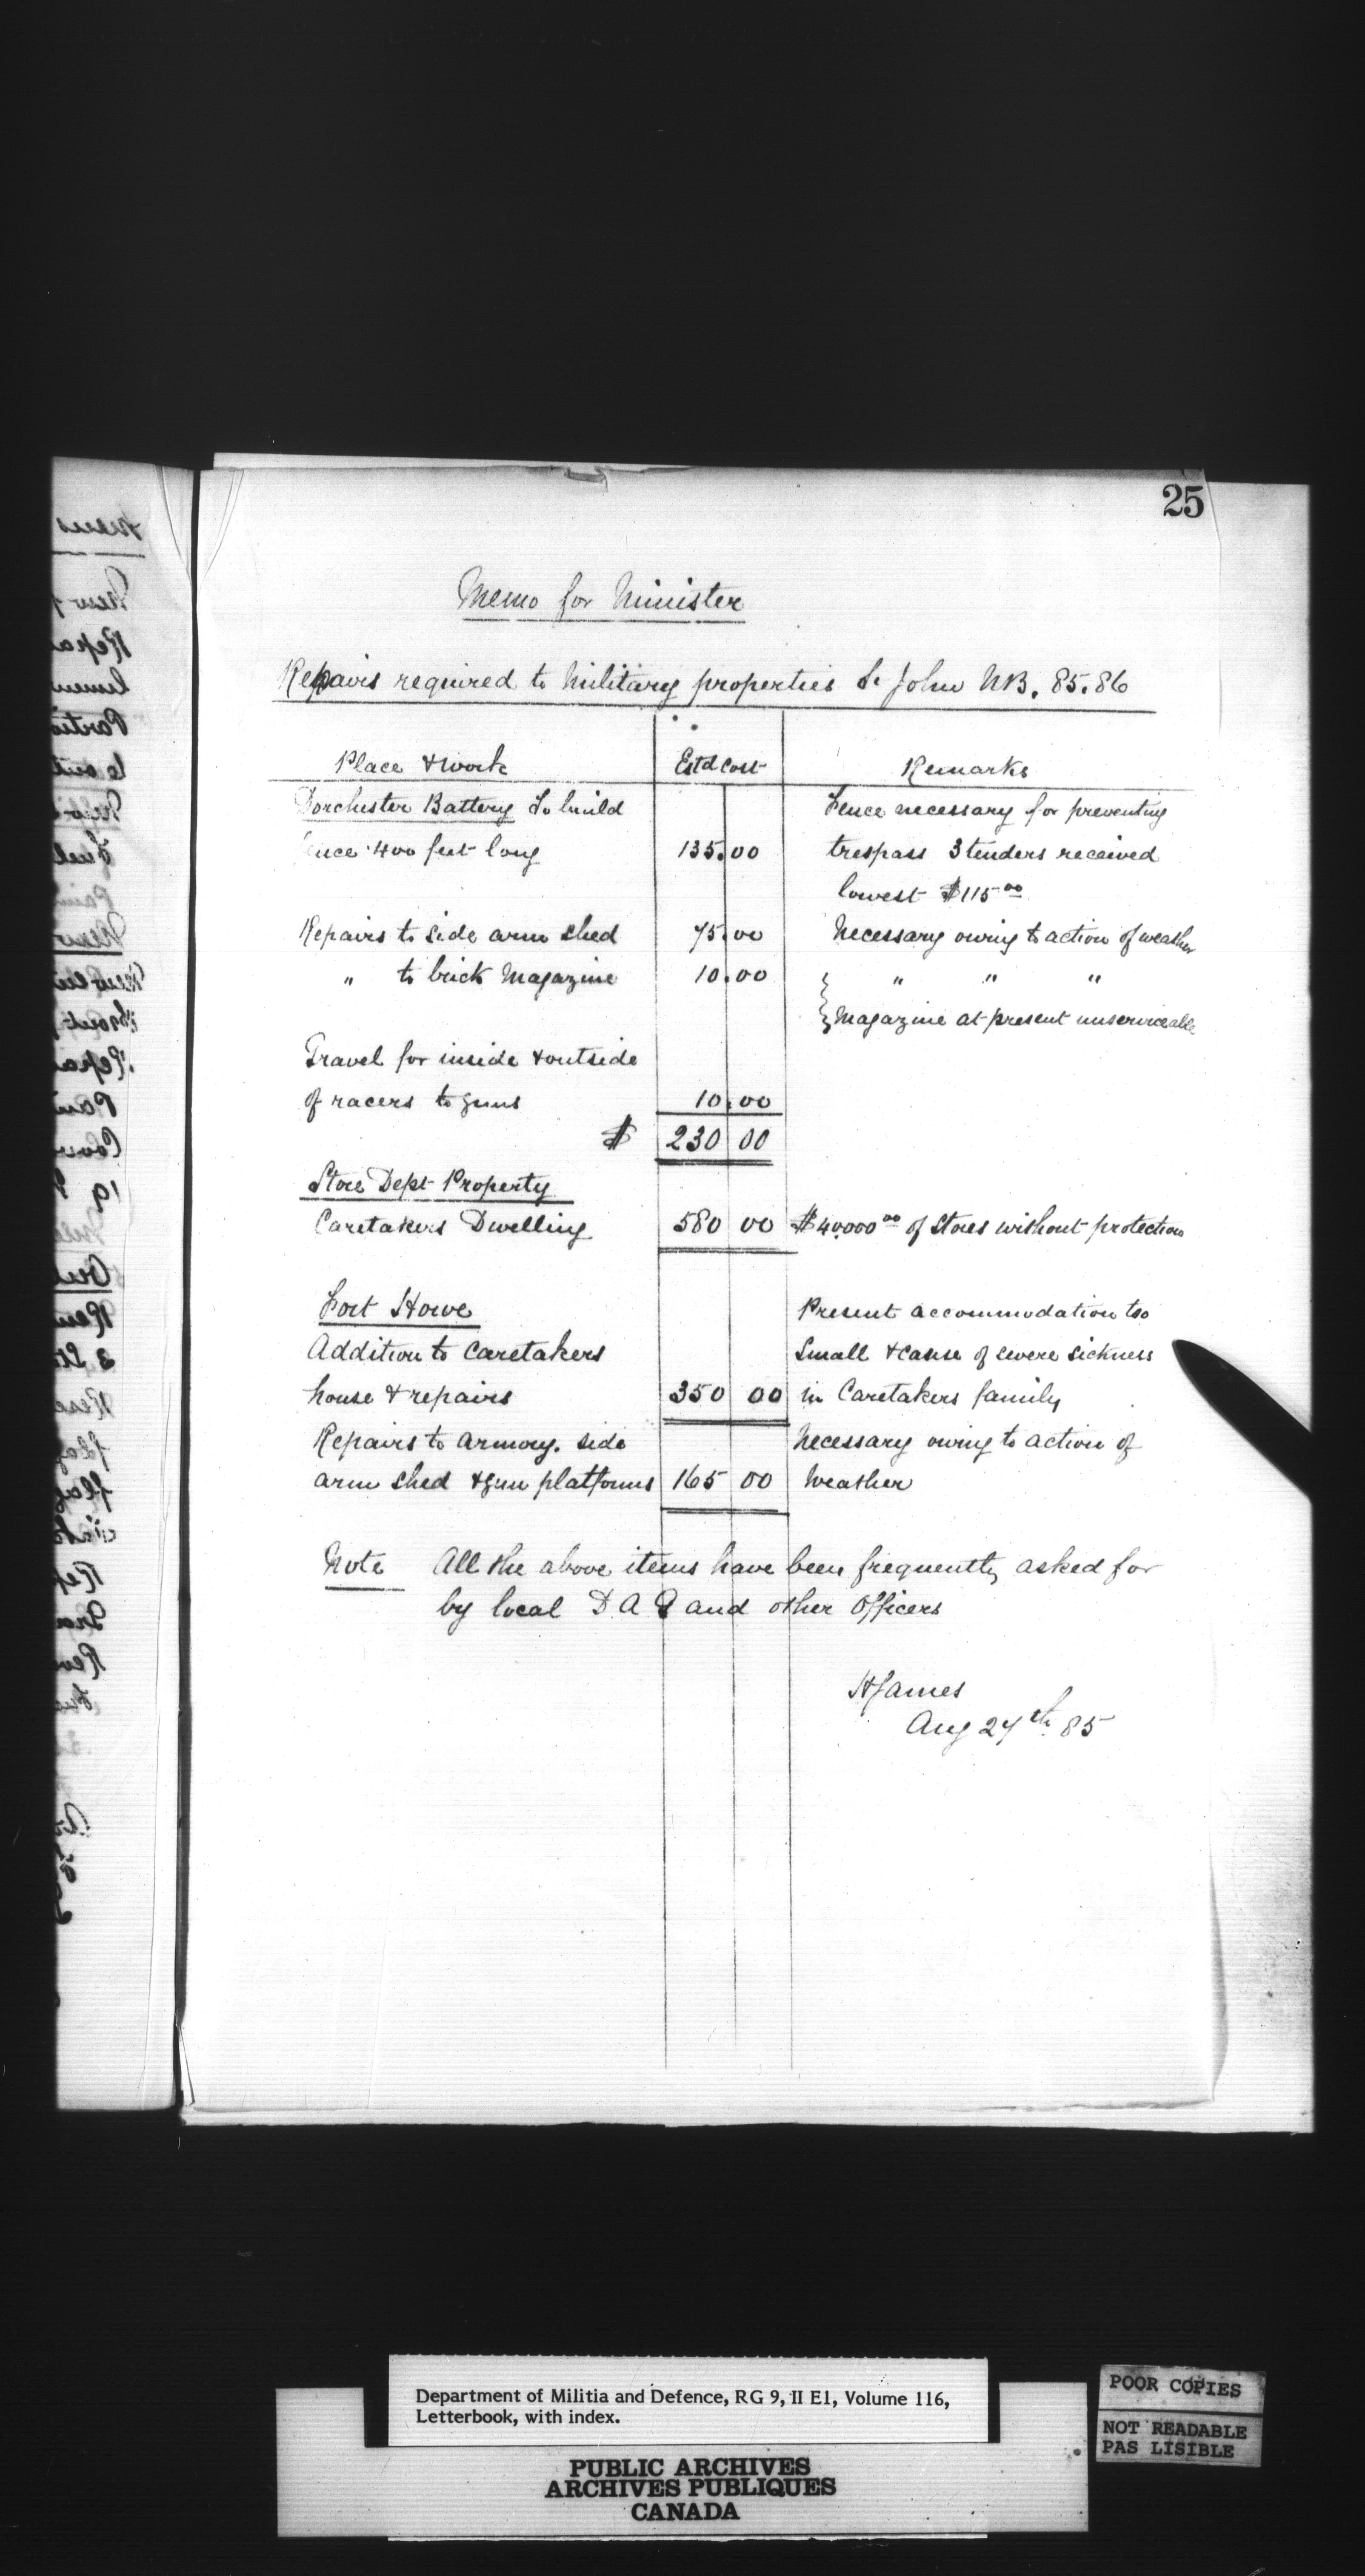 25
Memo for Minister
Repairs required to Military properties St John NB. 85.86
Place & Work Estd Cost Remarks
Dorchester Battery To build Fence necessary for preventing
fence 400 feet long 135.00 trespass 3 tenders received
lowest $115 00
Repairs to side arm shed 75.00 Necessary owing to action of weather
" to brick Magazine 10.00 " " "
Magazine at present unserviceable
Gravel for inside & outside
of racers to guns 10.00
$ 230 00
Store Dept Property
Caretakers Dwelling 580 00 $40,000 00 of Stores without protection
Fort Howe Present accommodation too
Addition to Caretakers small & cause of severe sickness
house & repairs 350 00 in Caretakers family
Repairs to armory. side Necessary owing to action of
arm shed & gun platforms 165 00 Weather
Note All the above items have been frequently asked for
by local D A G and other Officers
H James
Aug 27th 85
Department of Militia and Defence, RG 9, II E1, Volume 116,
Letterbook, with index.
PUBLIC ARCHIVES
ARCHIVES PUBLIQUES
CANADA
POOR COPIES
NOT READABLE
PAS LISIBLE